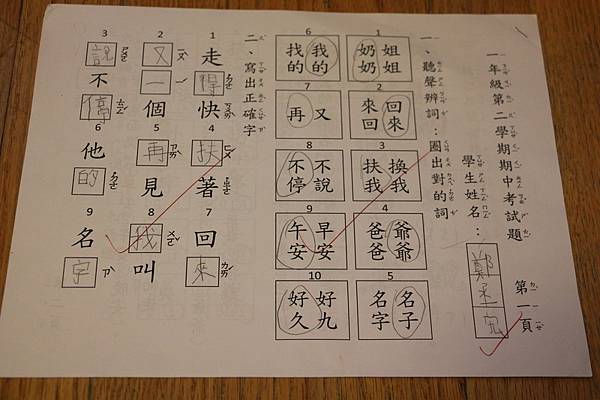 一年級第二學期期中考試題 第一頁
學生姓名：鄭丞
一、聽聲辨詞：圈出對的詞
1 姐姐 奶奶
2 回來 來回
3 換我 扶我
4 爺爺 爸爸
5 名子 名字
6 我的 找的
7 又 再
8 不說 不停
9 早安 午安
10 好九 好久
二、寫出正確字
1 走得快
2 又一個
3 說不停
4 扶著
5 再見
6 他的
7 回來
8 我叫
9 名字